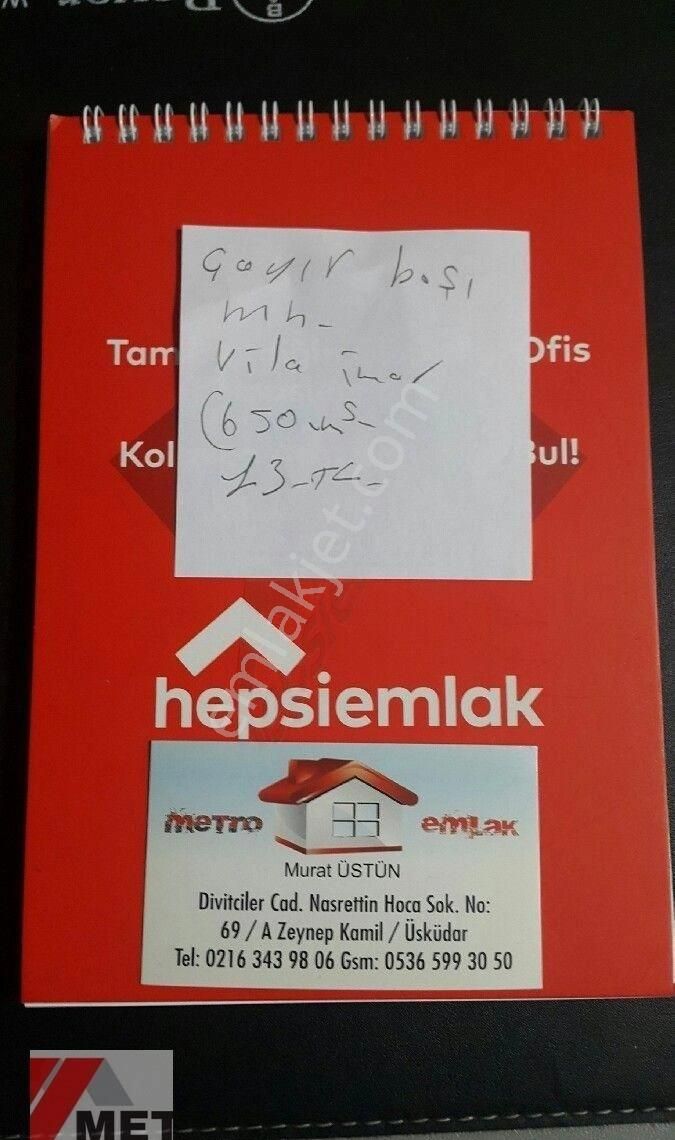 Çayır başı
mh-
Vila imar
(650 m²-
13-TL-
Tam
Ofis
Kol
Bul!
hepsiemlak
metro emlak
Murat ÜSTÜN
Divitciler Cad. Nasrettin Hoca Sok. No:
69 / A Zeynep Kamil / Üsküdar
Tel: 0216 343 98 06 Gsm: 0536 599 30 50
emlakjet.com
MET